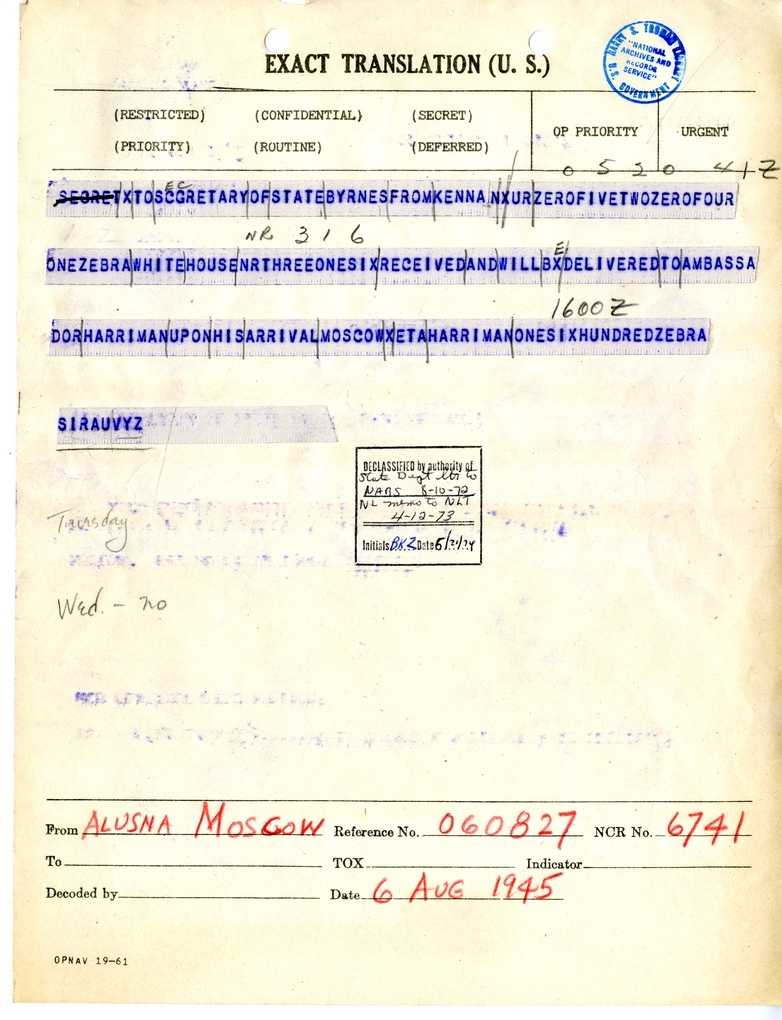 EXACT TRANSLATION (U. S.)
HARRY S. TRUMAN LIBRARY
"NATIONAL
ARCHIVES AND
RECORDS
SERVICE"
U.S. GOVERNMENT
(RESTRICTED) (CONFIDENTIAL) (SECRET)
(PRIORITY) (ROUTINE) (DEFERRED)
OP PRIORITY URGENT
0 5 2 0 4 1 Z
EC
SECRETXTOSCGRETARYOFSTATEBYRNESFROMKENNANXURZEROFIVETWOZEROFOUR
NR 3 1 6
E
ONEZEBRAWHITEHOUSENRTHREEONESIXRECEIVEDANDWILLBXDELIVEREDTOAMBASSA
1600Z
DORHARRIMANUPONHISARRIVALMOSCOWXETAHARRIMANONESIXHUNDREDZEBRA
SIRAUVYZ
DECLASSIFIED by authority of
State Dept ltr to
NARS 8-10-72
NL memo to NLT
4-12-73
Initials BKZ Date
Thursday
Wed. - no
From ALUSNA MOSCOW Reference No. 060827 NCR No. 6741
To TOX Indicator
Decoded by Date 6 AUG 1945
OPNAV 19-61